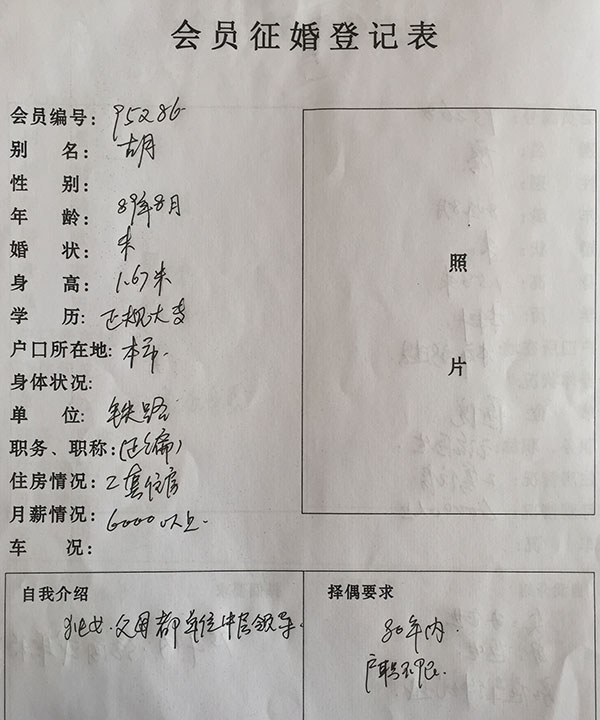 会员征婚登记表
会员编号: 95286
别 名: 胡
性 别:
年 龄: 89年8月
婚 状: 未
身 高: 1.67米
学 历: 正规大专
户口所在地: 本市.
身体状况:
单 位: 铁路
职务、职称: (正编)
住房情况: 2套住房
月薪情况: 6000以上.
车 况:
照
片
自我介绍
独女.父母都单位中层领导.
择偶要求
80年内.
户职不限.